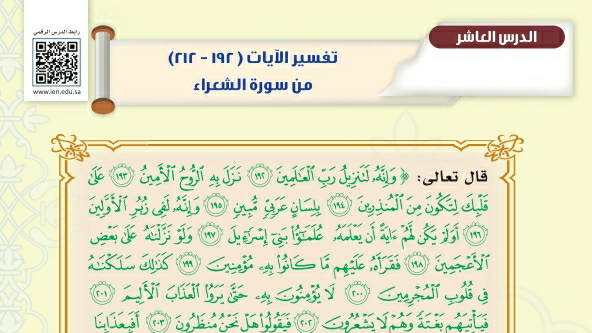 رابط الدرس الرقمي
www.ien.edu.sa
الدرس العاشر
تفسير الآيات ( ١٩٢ - ٢١٢)
من سورة الشعراء
قال تعالى: ﴿ وَإِنَّهُۥ لَتَنزِيلُ رَبِّ ٱلْعَٰلَمِينَ ١٩٢ نَزَلَ بِهِ ٱلرُّوحُ ٱلْأَمِينُ ١٩٣ عَلَىٰ
قَلْبِكَ لِتَكُونَ مِنَ ٱلْمُنذِرِينَ ١٩٤ بِلِسَانٍ عَرَبِيٍّ مُّبِينٍ ١٩٥ وَإِنَّهُۥ لَفِى زُبُرِ ٱلْأَوَّلِينَ
١٩٦ أَوَلَمْ يَكُن لَّهُمْ ءَايَةً أَن يَعْلَمَهُۥ عُلَمَٰٓؤُا۟ بَنِىٓ إِسْرَٰٓءِيلَ ١٩٧ وَلَوْ نَزَّلْنَٰهُ عَلَىٰ بَعْضِ
ٱلْأَعْجَمِينَ ١٩٨ فَقَرَأَهُۥ عَلَيْهِم مَّا كَانُوا۟ بِهِۦ مُؤْمِنِينَ ١٩٩ كَذَٰلِكَ سَلَكْنَٰهُ
فِى قُلُوبِ ٱلْمُجْرِمِينَ ٢٠٠ لَا يُؤْمِنُونَ بِهِۦ حَتَّىٰ يَرَوُا۟ ٱلْعَذَابَ ٱلْأَلِيمَ ٢٠١
فَيَأْتِيَهُم بَغْتَةً وَهُمْ لَا يَشْعُرُونَ ٢٠٢ فَيَقُولُوا۟ هَلْ نَحْنُ مُنظَرُونَ ٢٠٣ أَفَبِعَذَابِنَا